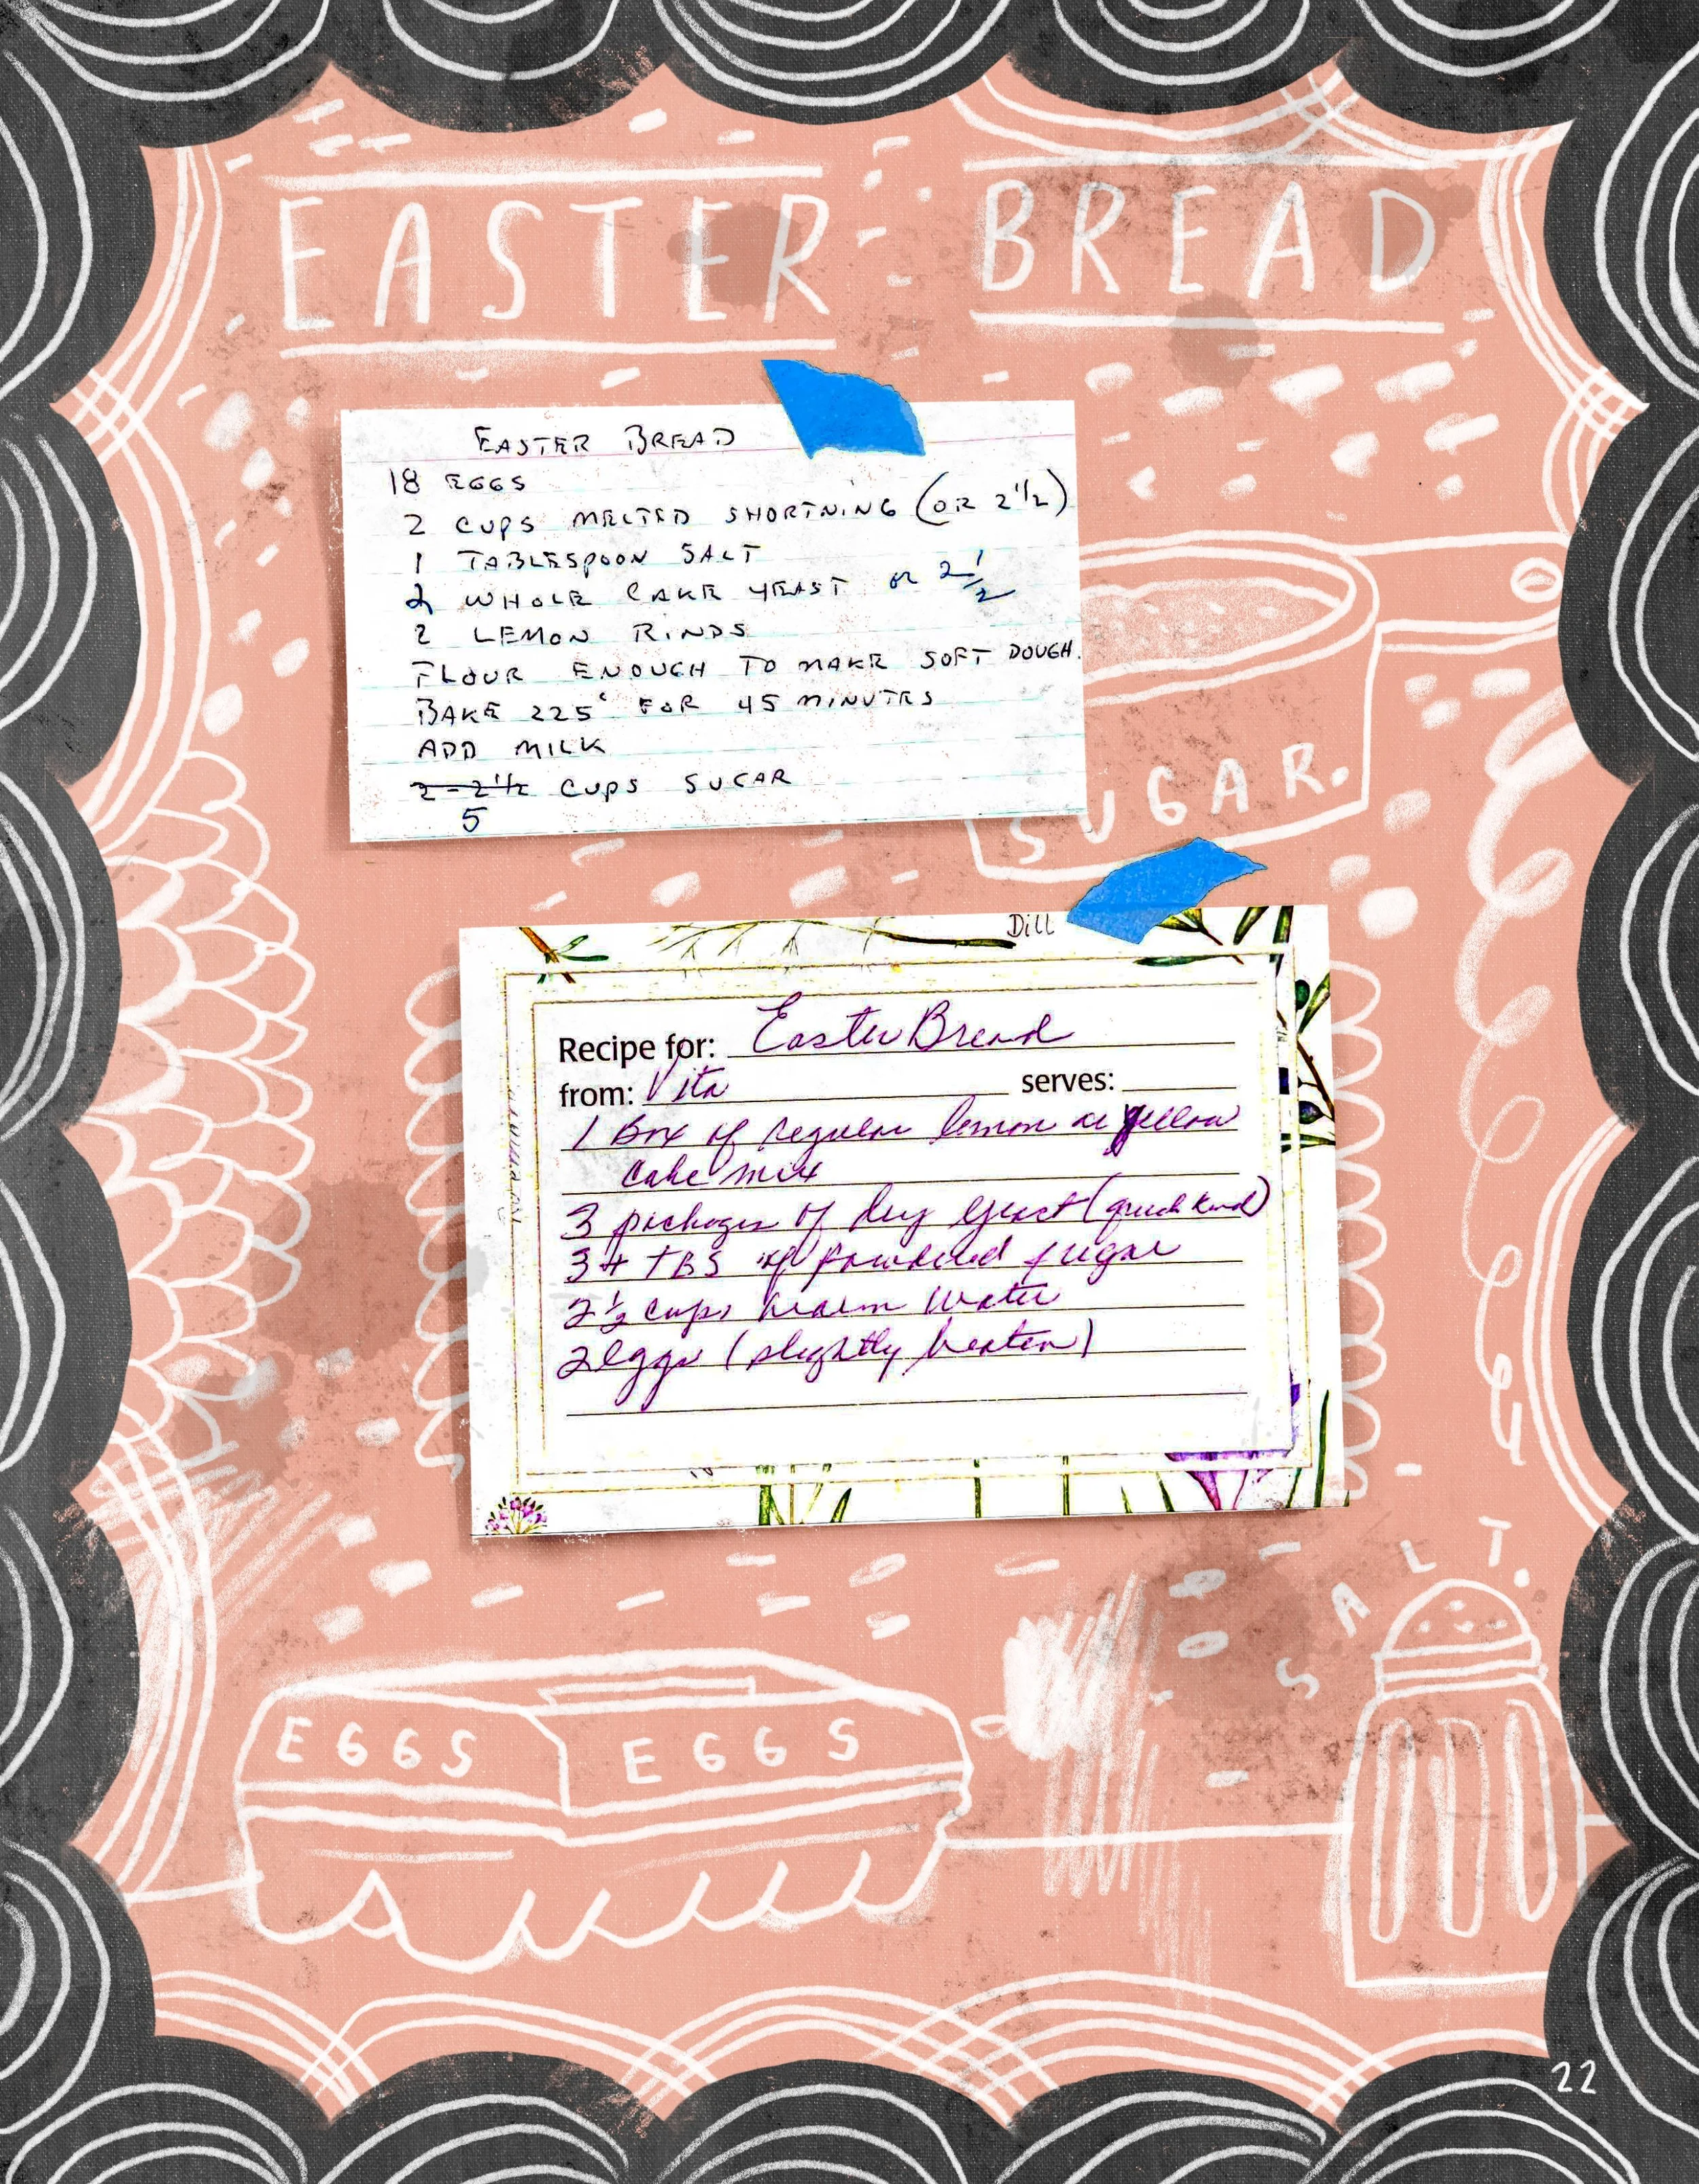 EASTER BREAD
EASTER BREAD
18 EGGS
2 CUPS MELTED SHORTNING (OR 2 1/2)
1 TABLESPOON SALT
2 WHOLE CAKE YEAST OR 2 1/2
2 LEMON RINDS
FLOUR ENOUGH TO MAKE SOFT DOUGH.
BAKE 225° FOR 45 MINUTES
ADD MILK
2-2 1/2 CUPS SUGAR
5
SUGAR.
Dill
Recipe for: Easter Bread
from: Vita serves:
1 Box of regular lemon or yellow
cake mix
3 packages of dry yeast (quick kind)
3 + TBS of powdered sugar
2 1/2 cups warm water
2 eggs (slightly beaten)
SALT.
EGGS EGGS
22